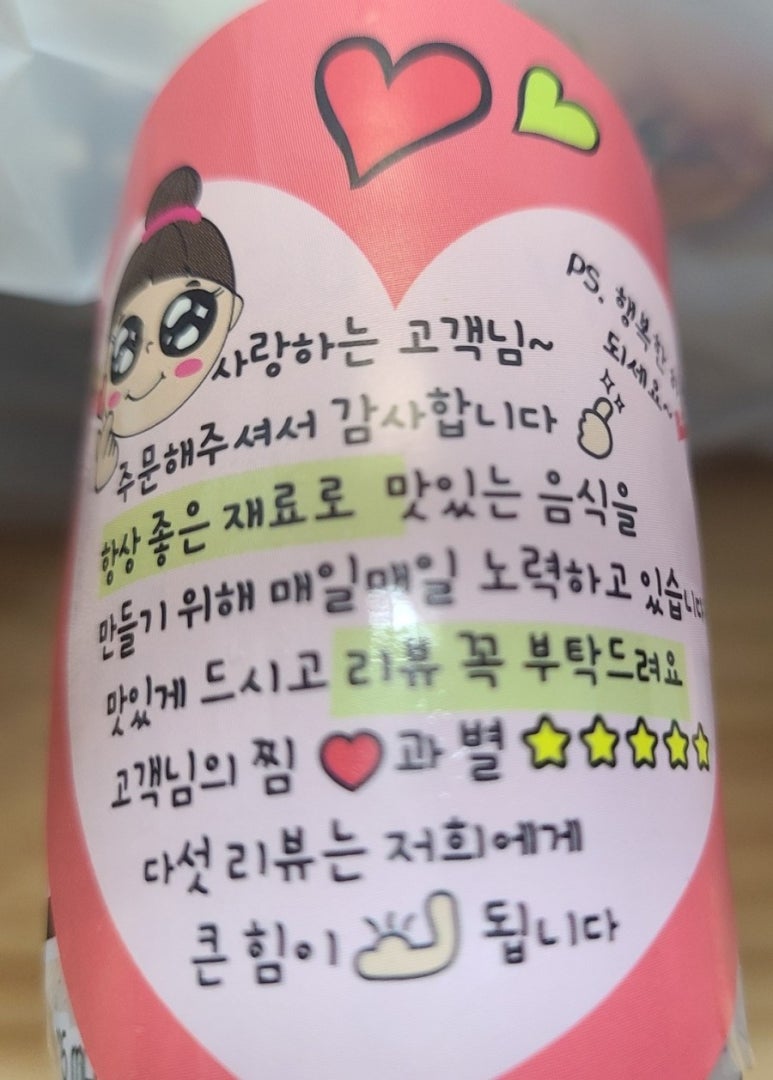 PS. 행복한
되세요~
사랑하는 고객님~
주문해주셔서 감사합니다
항상 좋은 재료로 맛있는 음식을
만들기 위해 매일매일 노력하고 있습니다
맛있게 드시고 리뷰 꼭 부탁드려요
고객님의 찜 ❤과 별 ★★★★★
다섯 리뷰는 저희에게
큰 힘이 됩니다